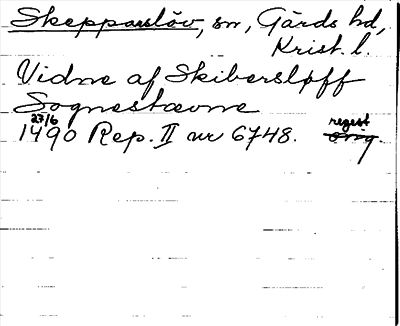 Skepparslöv, sn, Gärds hd,
Krist. l.
Vidne af Skibersløff
Sognestævne
27/6
1490 Rep. II nr 6748. regest
orig.